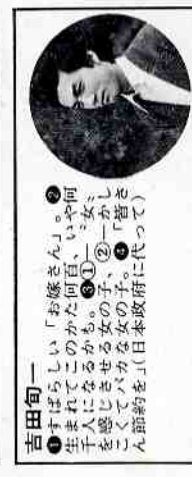 吉田旬一
❶すばらしい「お嫁さん」。❷
生まれてこのかた何百、いや何
千人になるかも。❸①―〝女〟
を感じさせる女の子、②―かし
こくてバカな女の子。❹「皆さ
ん節約を」(日本政府に代って)